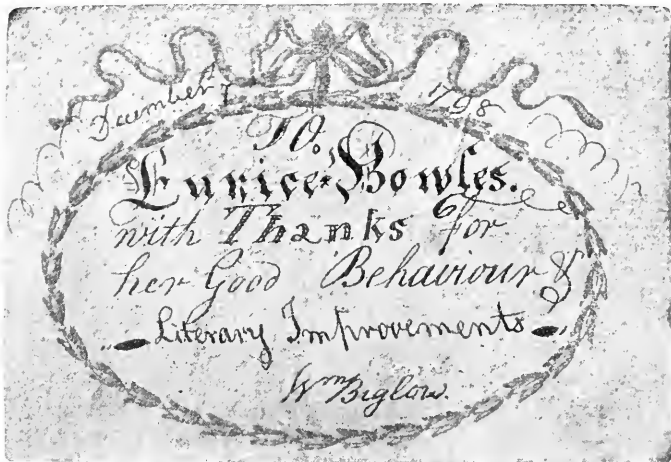 December 1 1798
To.
Eunice Bowles.
with Thanks for
her Good Behaviour &
Literary Improvements
Wm Biglow.